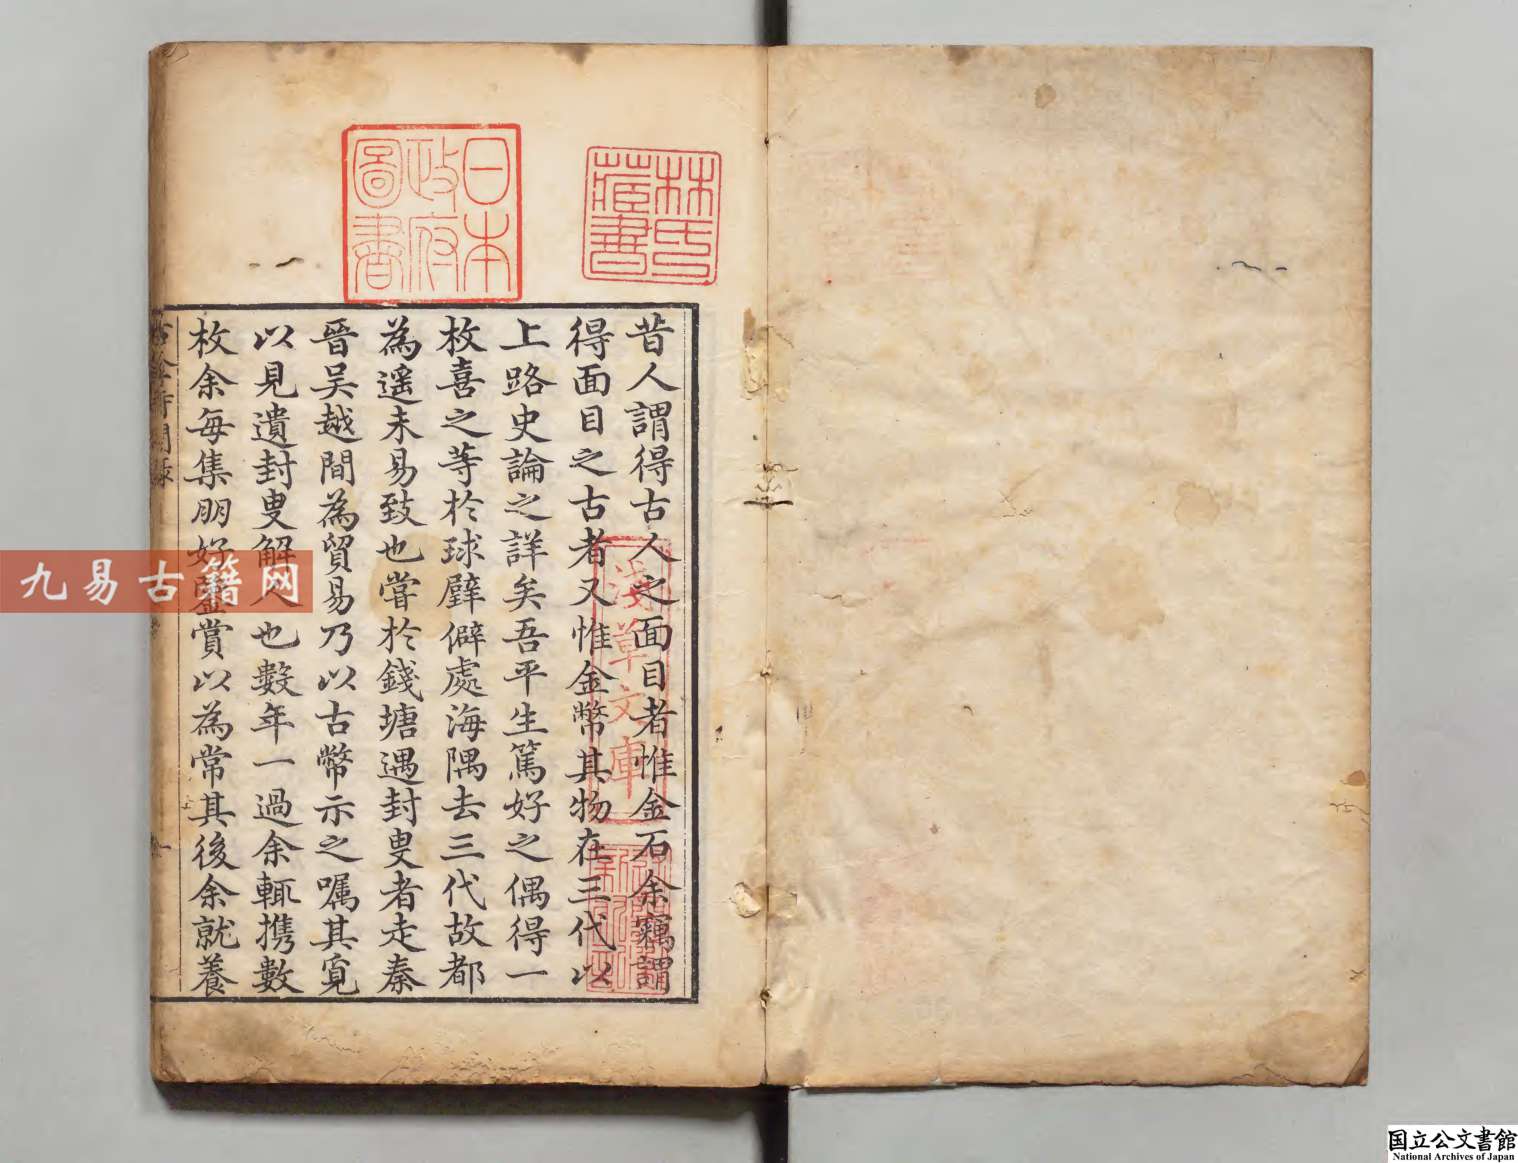 日本
政府
圖書
林氏
藏書
昔人謂得古人之面目者惟金石余竊謂
得面目之古者又惟金幣其物在三代以
上路史論之詳矣吾平生篤好之偶得一
枚喜之等於球璧僻處海隅去三代故都
為遥未易致也嘗於錢塘遇封叟者走秦
晉吴越間為貿易乃以古幣示之嘱其覓
以見遺封叟解人也數年一過余輒携數
枚余每集朋好鑒賞以為常其後余就養
淺草文庫
九易古籍网
国立公文書館
National Archives of Japan